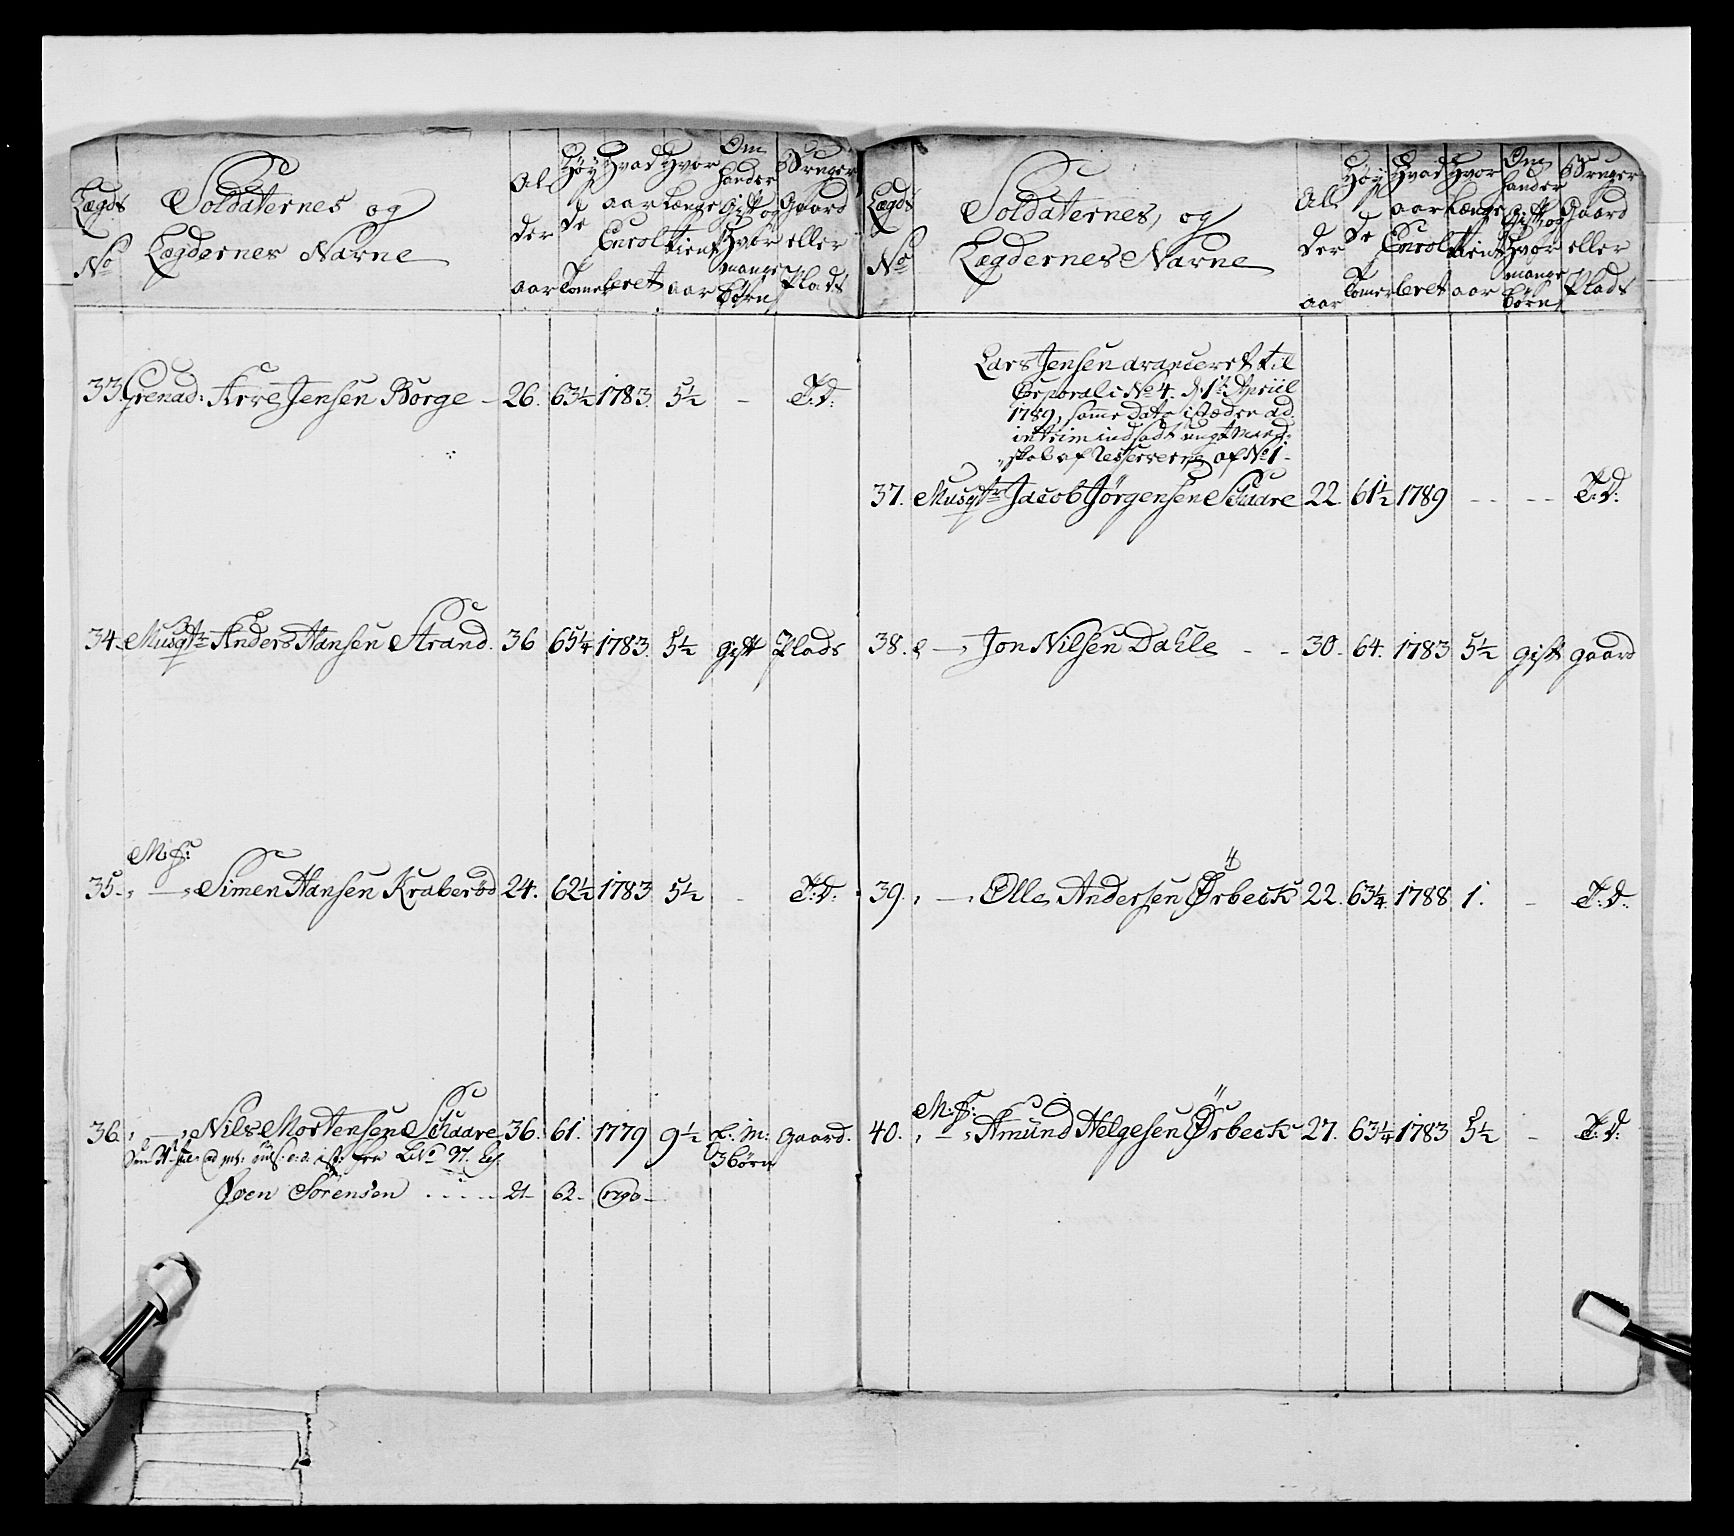 Lægds No
Soldaternes og
Lægdernes Nafne
Al der aar
Høyde Tomer
Hvad aar Enrolleret
Hvor Længe tient aar
Om hand er Gift og Hvor mange børn
Bruger Gaard eller Plads
33 Grenad: Arre Jensen Borge - 26. 63½ 1783. 5½ - T:D:
34. Musqtr Anders Hansen Strand. 36 65¼ 1783. 5½ gift Plads
M:S:
35. - Simen Hansen Kraberød 24. 62½ 1783 5½ - T:D:
36. - Nils Mortensen Schaare 36. 61. 1779 9½ E. M: gaard.
3 børn
fra No 97.
Sven Sørensen 21 62 1790
Lægds No
Soldaternes, og
Lægdernes Nafne
Al der aar
Høyde Tomer
Hvad aar Enrolleret
Hvor Længe tient aar
Om hand er Gift, og Hvor mange børn
Bruger Gaard eller Plads
Lars Jensen avanceret til
Corporal i No 4. d: 1te April
1789, samme dato istæden ad
interim indsadt ungt Mand-
skab af Reserven af No 1
37. Musqtr Jacob Jørgensen Schaare 22. 61½ 1789 - - - - T:D:
38. - Jon Nilsen Dahle - - 30. 64. 1783 5½ gift gaard
39. - Olle Andersen Ørbeck 22. 63¼ 1788 1. - T:D:
M:S:
40. - Amund Helgesen Ørbeck 27. 63¼ 1783 5½ - T:D: